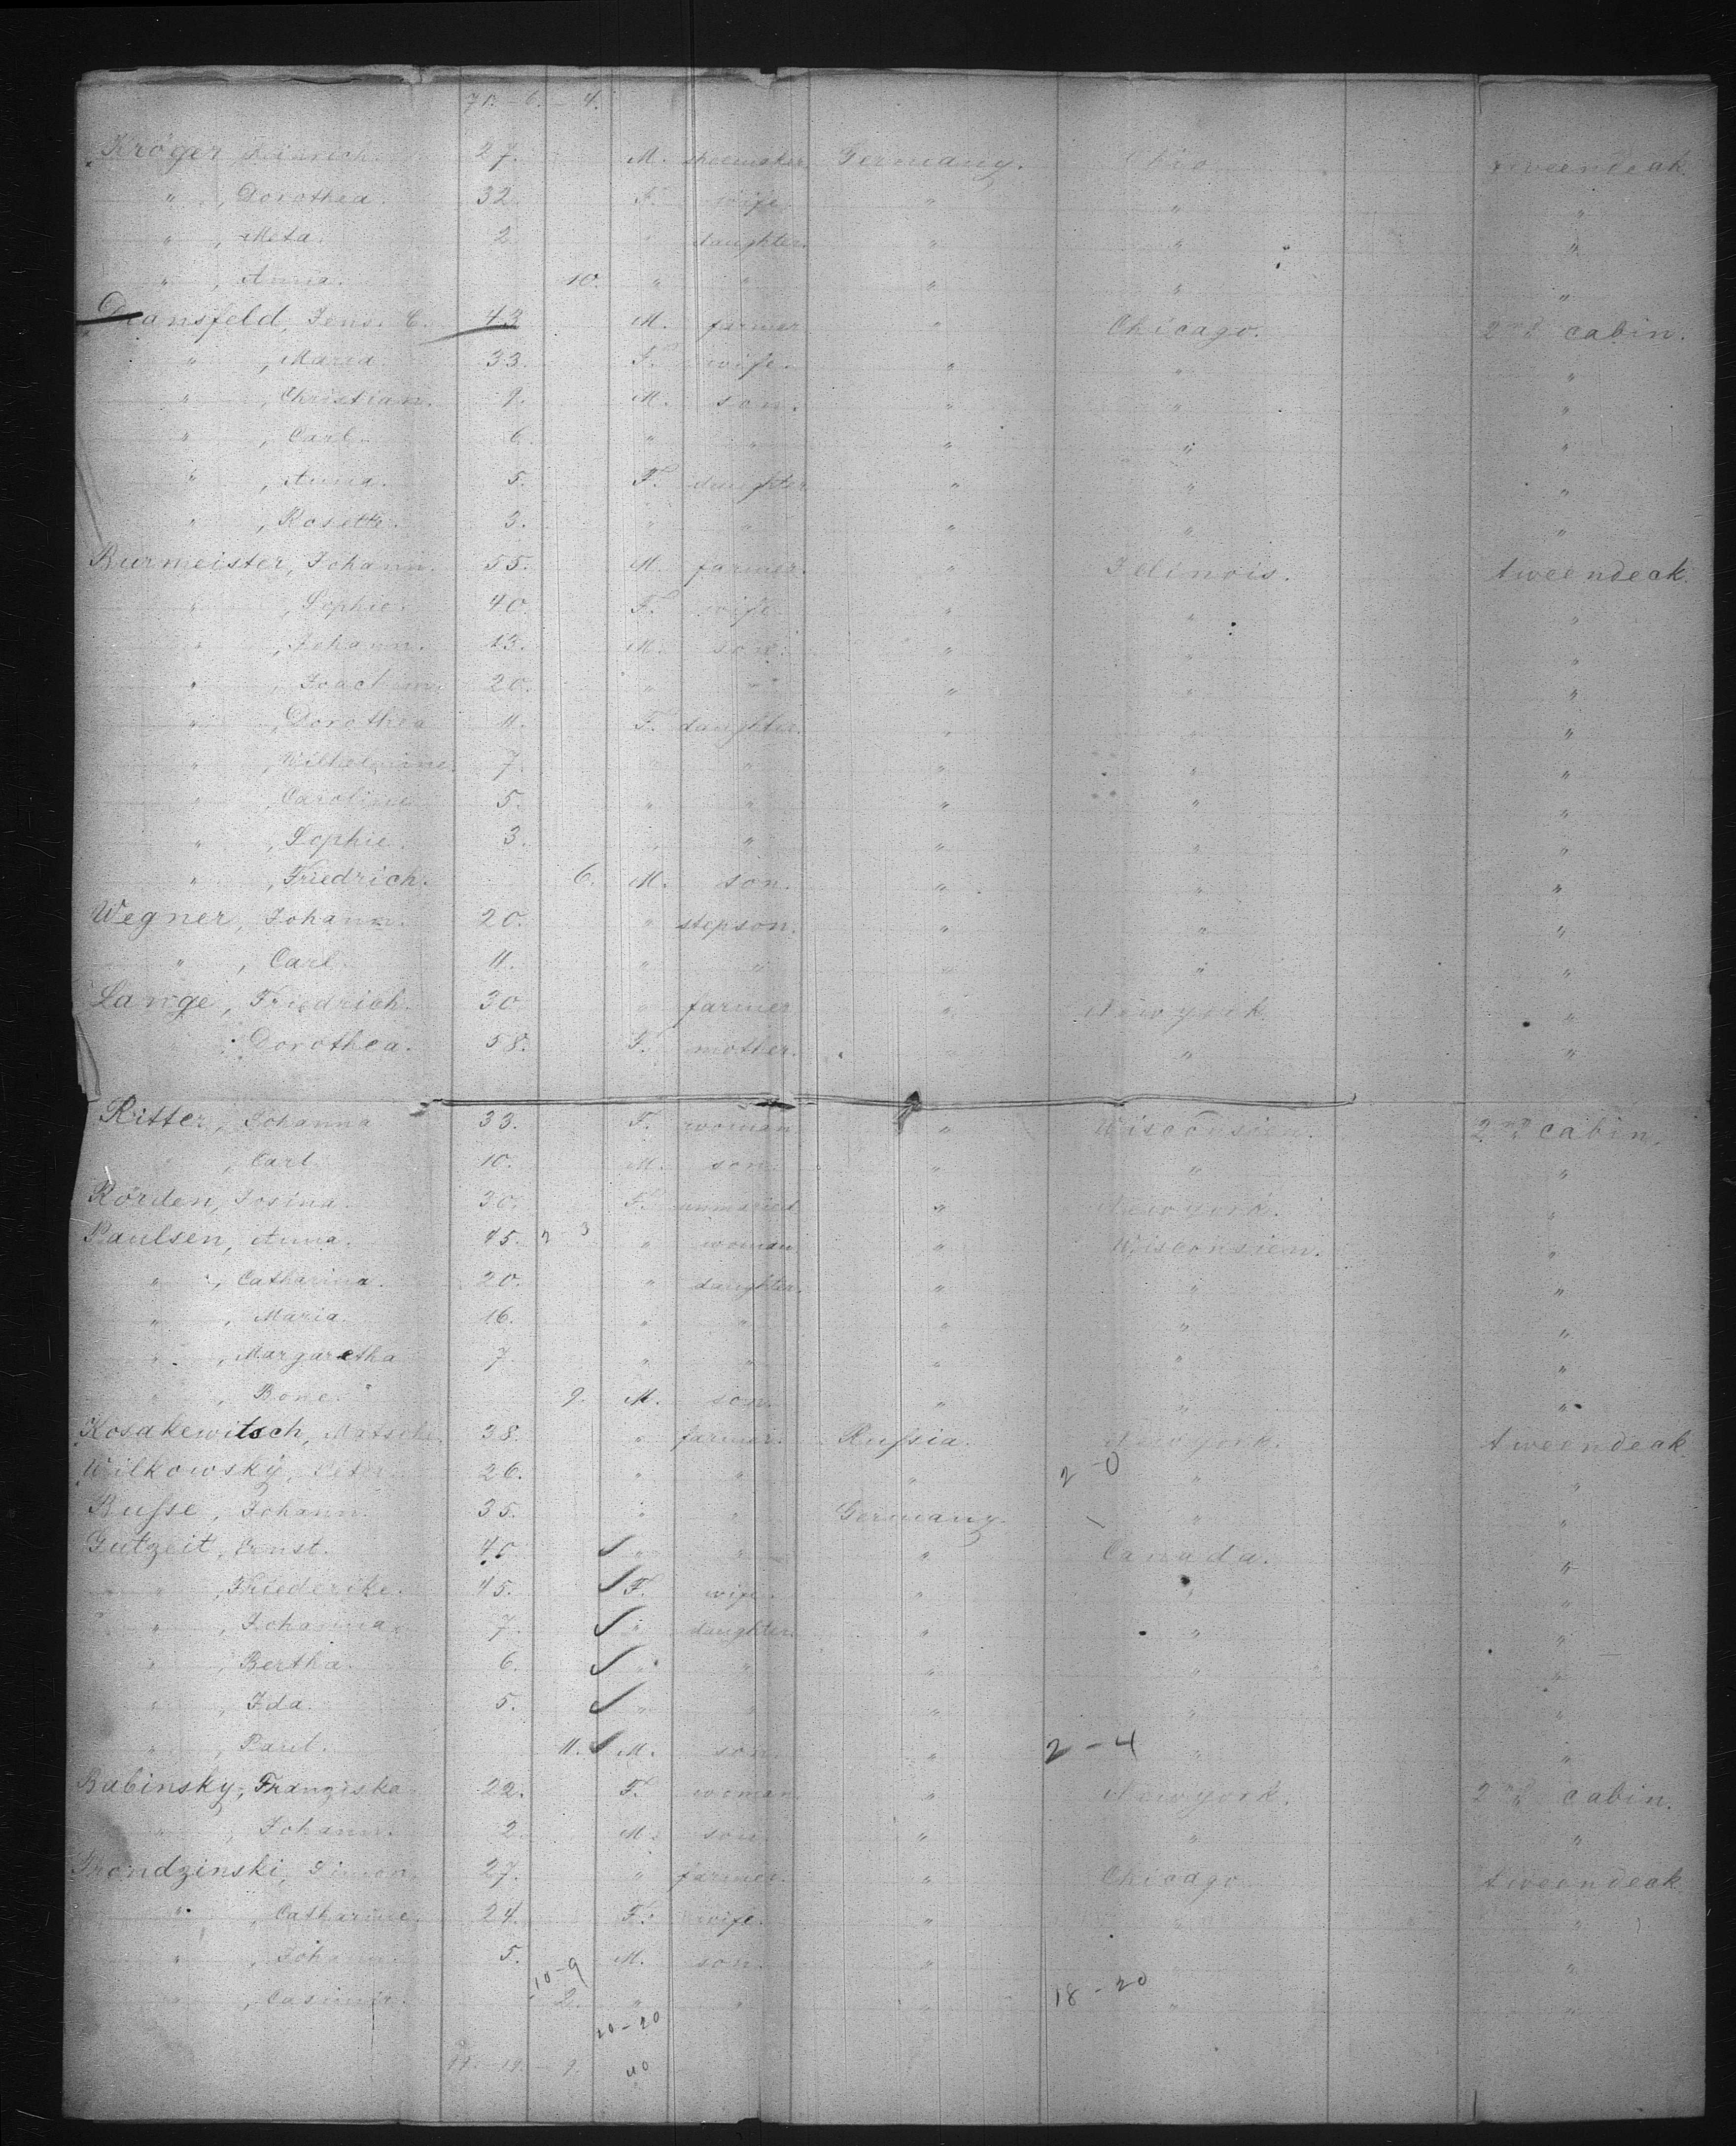 71. - 6. - 4.
Kröger, Heinrich. 27. M. shoemaker. Germany. Ohio tweendeak.
" , Dorothea. 32. F. wife. " " "
" , Meta. 2. " daughter. " " "
" , Anna. 10. " " " " "
Dransfeld, Jens. C. 43 M. farmer. " Chicago. 2nd cabin.
" , Maria. 33. F. wife. " " "
" , Christian. 9. M. son. " " "
" , Carl. 6. " " " " "
" , Anna. 5. F. daughter " " "
" , Rosette. 3. " " " " "
Burmeister, Johann. 55. M. farmer. " Illinois. tweendeak.
" , Sophie. 40. F. wife. " " "
" , Johann. 13. M. son. " " "
" , Joachim. 20. " " " " "
" , Dorothea 11. F. daughter. " " "
" , Wilhelmine. 7. " " " " "
" , Caroline 5. " " " " "
" , Sophie. 3. " " " " "
" , Friedrich. 6. M. son. " " "
Wegner, Johann. 20. " stepson. " " "
" , Carl. 11. " " " " "
Lange, Friedrich. 30. " farmer " Newyork. "
" , Dorothea. 58. F. mother. " " "
Ritter, Johanna 33. F. woman. " Wisconsien. 2nd cabin.
" , Carl. 10. M. son. " " "
Rörden, Josina. 30. F. unmaried " Newyork. "
Paulsen, Anna. 45. 2 3 " woman " Wisconsien. "
" , Catharina. 20. " daughter. " " "
" , Maria. 16. " " " " "
" , Margaretha 7. " " " " "
" , Bone. 9. M. son. " " "
Kosakewitsch, 38. " farmer. Russia. Newyork. tweendeak.
Wilkowsky, Peter. 26. " " " 2 - 0 " "
Busse, Johann. 35. " " Germany. " "
Gutzeit, Ernst. 40. " " " Canada. "
" , Friederike. 45. F. wife. " " "
" , Johanna. 7. " daughter. " " "
" , Bertha. 6. " " " " "
" , Ida. 5. " " " " "
" , Paul. 11. M. son. " 2 - 4 " "
Babinsky, Franziska. 22. F. woman. " Newyork. 2nd cabin.
" , Johann. 2. M. son. " " "
Prondzinski, Simon. 27. " farmer. " Chicago tweendeak
" , Catharine. 24. F. wife. " " "
" , Johann. 5. M. son. " " "
" , Casimir. 10-9 2. " " " 18 - 20 " "
20-20
99. - 19. - 9. 40